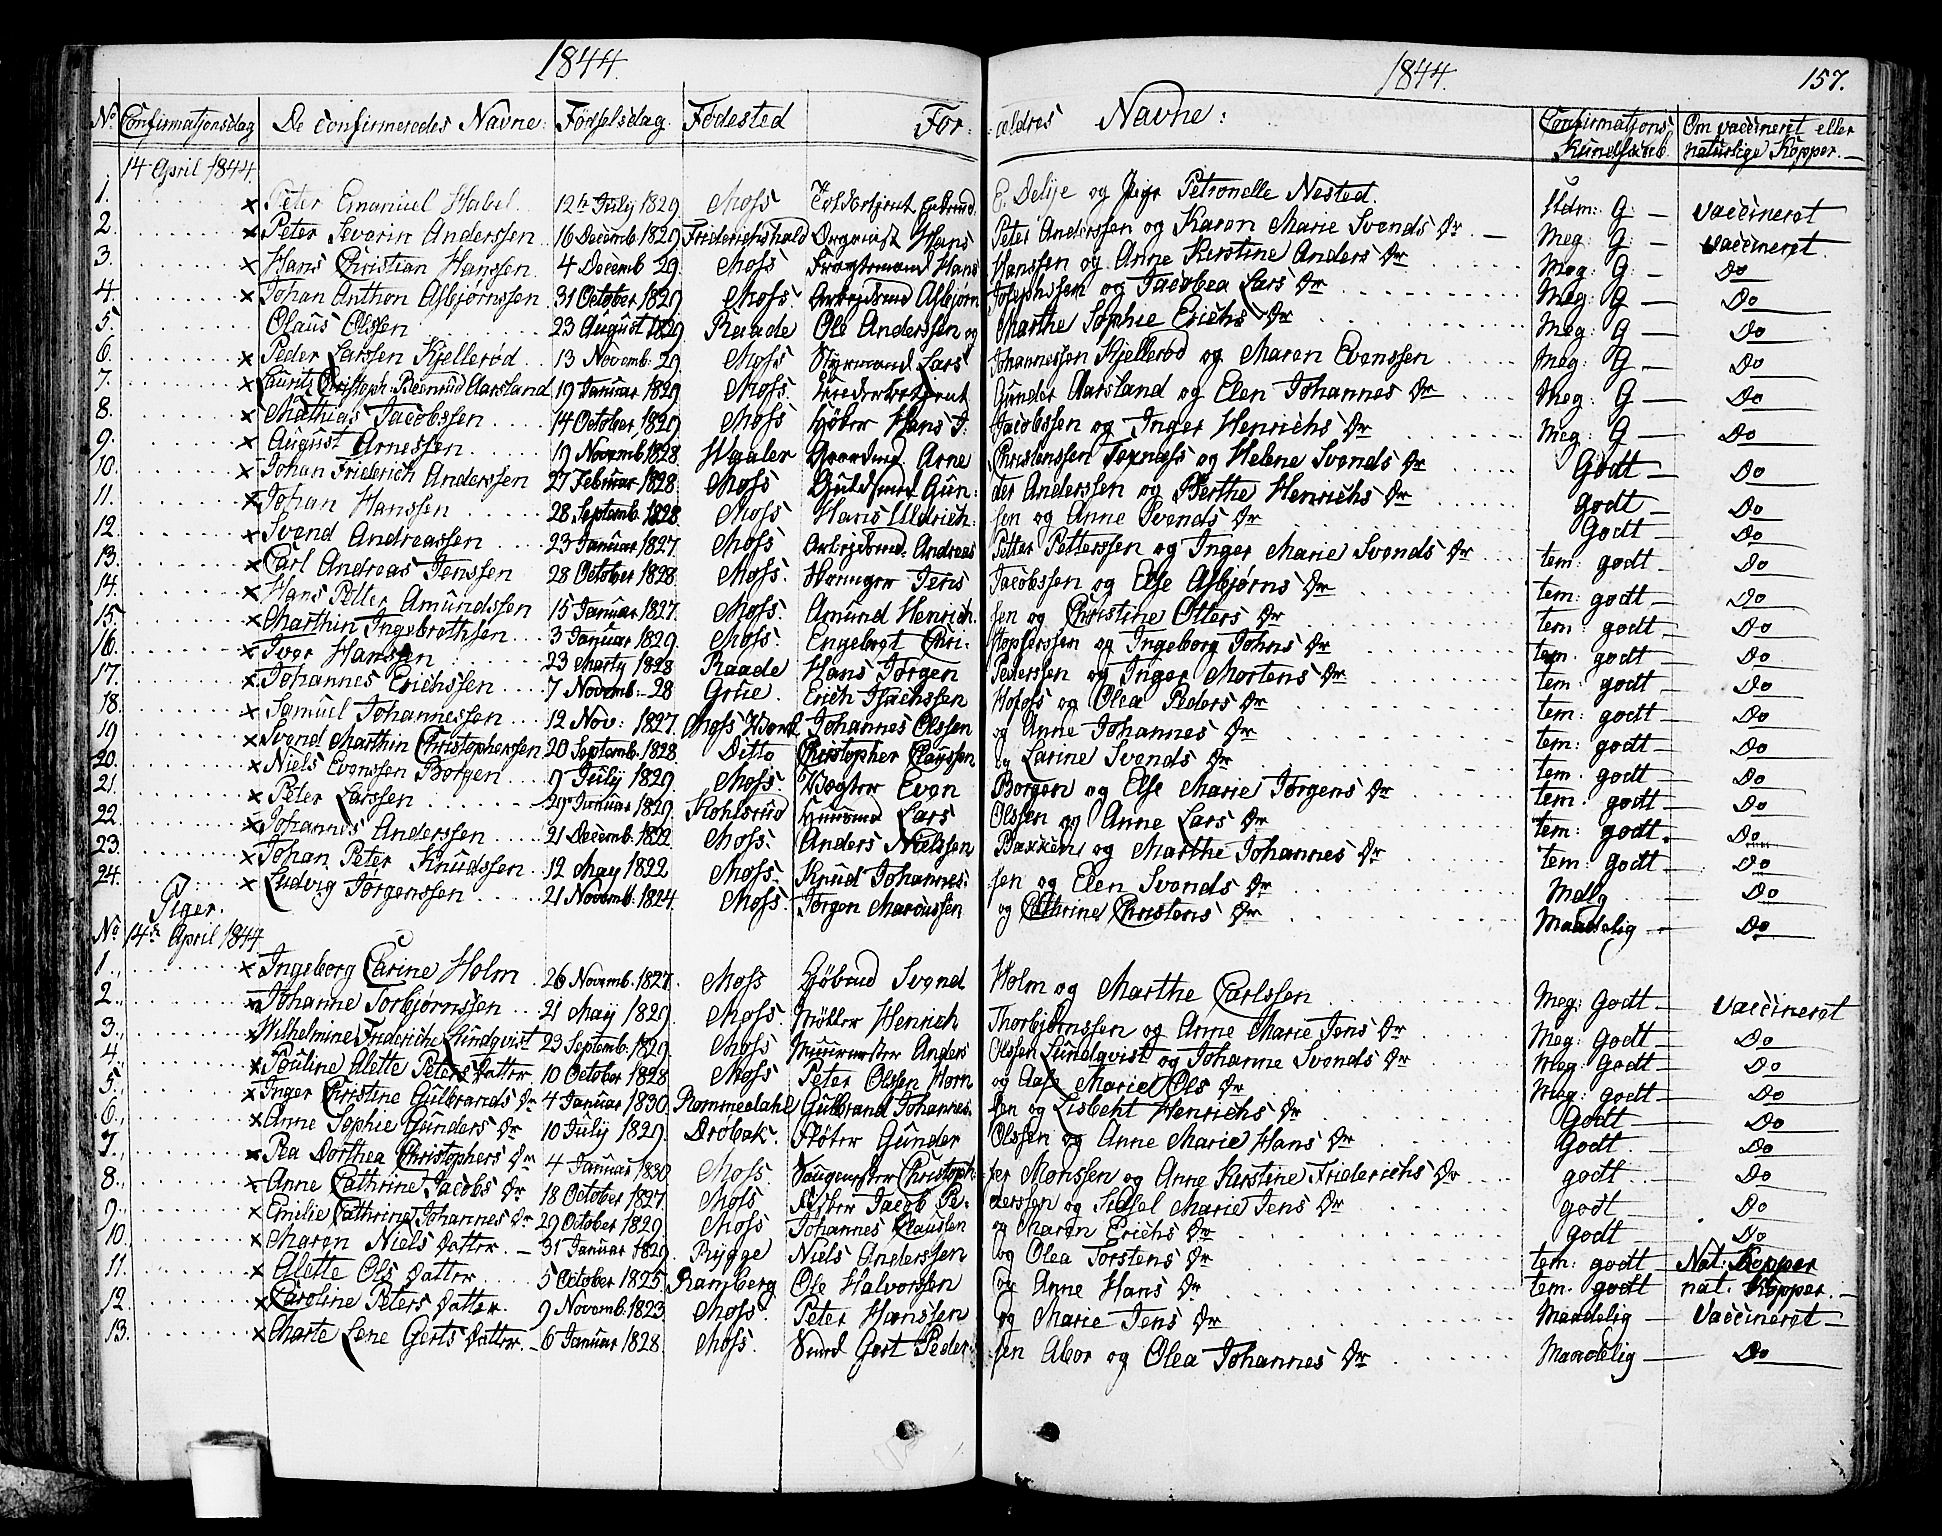 1844. 1844. 157.
No Confirmatjonsdag De confirmeredes Navne: Födselsdag. Födested For: ældres Navne: Confirmatjons Kundskab. Om vaccineret eller naturlige Kopper.
14 April 1844.
1. × Peter Emanuel Habel. 12te July 1829 Moss E. Delije og Petronelle Nested. Udm: G: — vaccineret
2. × Peter Severin Anderssen 16 Decemb. 1829 Friderichshald Hans Peter Anderssen og Karen Marie Svends Dr. — Meg: G: — vaccineret.
3. × Hans Christian Hanssen 4 Decemb 29. Moss Hans Hanssen og Anne Kerstine Anders Dr Meg: G: — Do
4. × Johan Anthon Asbjørnssen 31 October 1829 Moss Arbejdsmd Asbjørn Josephssen og Jacobea Lars Dr Meg: G — Do
5. Olaus Olssen 23 August 1829 Raade Ole Anderssen og Marthe Sophie Erichs Dr Meg: G — Do
6. × Peder Larssen Kjellerød 13 Novemb: 29. Moss Styrmand Lars Johannessen Kjellerød og Maren Evenssen Meg: G. — Do
7. × Laurits Christoph: Aarsland 19 Januar 1829 Moss Gunder Aarsland og Elen Johannes Dr Meg: G — Do
8. × Mathias Jacobssen 14 October 1829 Moss Hans J: Jacobssen og Inger Henrichs Dr Meg: G — Do
9. × August Arnessen 19 Novemb 1828. Hvaler Arne Christenssen og Helene Svends Dr Godt — Do
10. × Johan Friderich Anderssen 27 Februar 1828. Moss Guldsmed Gun: der Anderssen og Berthe Henrichs Dr Godt — Do
11. × Johan Hanssen 28 Septemb. 1828. Moss Hans Uldrich: sen og Anne Svends Dr Godt — Do
12. × Svend Andreassen 23 Januar 1827. Moss Arbejdsmd: Andreas Petter Petterssen og Inger Marie Svends Dr tem: godt — Do
13. × Carl Andreas Jenssen 28 October 1828 Moss. Jens Jacobssen og Else Asbjørns Dr tem: godt — Do
14. × Hans Petter Amundssen 15 Januar 1827. Moss. Amund Henrich: sen og Christine Otters Dr tem: godt — Do
15. × Marthin Ingebrethsen 3 Januar 1829. Moss. Engebret Chri: stopherssen og Ingeborg Johns Dr tem: godt — Do
16. × Iver Hanssen 23 Martj 1828 Raade Hans Jørgen Pederssen og Inger Mortens Dr tem: godt — Do
17. × Johannes Erichssen 7 Novemb: 28 Grue. Erich og Olea Peders Dr tem: godt — Do
18. × Samuel Johannessen 12 Nov: 1827. Moss Værk Johannes Olssen og Anne Johannes Dr tem: godt — Do
19 × Svend Marthin Christopherssen 20 Septemb. 1828. Ditto Christopher Claussen og Larine Svends Dr tem: godt — Do
20. × Niels Evenssen Borgen 9 July 1829. Moss. Vægter Even Borgen og Else Marie Jørgens Dr tem: godt — Do
21. × Peter Larssen Januar 1829. Lars Olssen og Anne Lars Dr tem: godt — Do
22. × Johannes Anderssen 21 Decemb: 1822. Moss. Anders Nielssen Bakken og Marthe Johannes Dr tem: godt. Do
23. × Johan Peter Knudssen 12 May 1822 Moss. Knud Johannes: sen og Elen Svends Dr tem: godt Do
24. × Ludvig Jørgenssen 21 Novemb: 1824. Moss. Jørgen Marcussen og Cathrine Christens Dr Maadelig — Do
Piger.
No 14de April 1844
1. × Ingeborg Carine Holm 26 Novemb. 1827. Moss Svend Holm og Marthe Carlssen Meg: Godt — vaccineret
2. × Johanne Torbjørnssen 21 May 1829. Moss. Møller Henrich Thorbjørnssen og Anne Marie Jens Dr Meg: Godt — Do
3. × Wilhelmine Frideriche Lundqvist 23 Septemb. 1829 Moss Muurmester Anders Olssen Lundqvist og Johanne Svends Dr Meg: Godt — Do
4. × Pouline Alette Peters Datter 10 October 1828 Moss. Peter Olssen Horn og Aase Marie Ols Dr Meg: godt — Do
5. × Inger Christine Gulbrands Dr 4 Januar 1830. Rommedahl Gulbrand Johannes: sen og Lisbeht Henrichs Dr Godt — Do
6. × Anne Sophie Gunders Dr 10 July 1829. Drøbak. Gunder Olssen og Anne Marie Hans Dr Godt. — Do
7. × Pea Dorthea Christophers Dr 4 Januar 1830 Moss. Saugmester Christoph: fer Monssen og Anne Kerstine Friderichs Dr godt — Do
8. × Anne Cathrine Jacobs Dr 18 October 1827. Moss. Jacob Pe: derssen og Sidsel Marie Jens Dr godt — Do
9. × Emilie Cathrine Johannes Dr 29 October 1829. Moss. Johannes Claussen og Maren Erichs Dr godt — Do
10. × Maren Niels Datter. — 31 Januar 1829. Rygge Niels Anderssen og Olea Torstens Dr tem: godt — Nat: Kopper
11. × Alette Ols Datter 5 October 1825. Ramberg Ole Halvorssen og Anne Hans Dr tem: godt nat: Kopper. —
12. × Caroline Peters Datter. 9 Novemb. 1823. Moss. Peter Hanssen og Marie Jens Dr Maadelig — Vaccineret —
13. × Marte Lene Gerts Datter. — 6 Januar 1828. Moss. Smed Gert Peder: sen Abor og Olea Johannes Dr Maadelig — Do